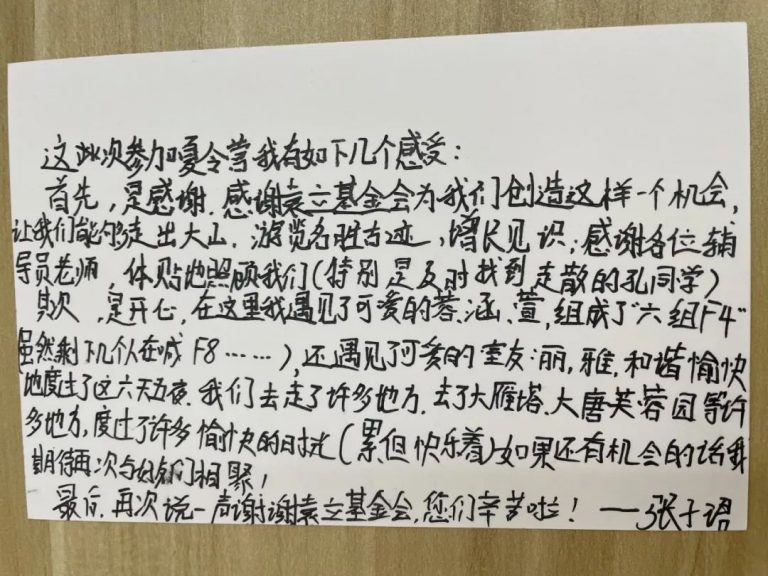 这此次参加夏令营我有如下几个感受：
首先，是感谢，感谢袁立基金会为我们创造这样一个机会，
让我们能够走出大山，游览名胜古迹，增长见识；感谢各位辅
导员老师，体贴地照顾我们（特别是及时找到走散的孔同学）
其次，是开心，在这里我遇见了可爱的蓉、涵、萱，组成了"六组F4"
虽然剩下几个人在喊F8……），还遇见了可爱的室友：丽，雅，和谐愉快
地度过了这六天五夜。我们去走了许多地方，去了大雁塔、大唐芙蓉园等许
多地方，度过了许多愉快的时光（累但快乐着）如果还有机会的话我
期待再次与她们相聚！
最后，再次说一声谢谢袁立基金会，您们辛苦啦！——张子